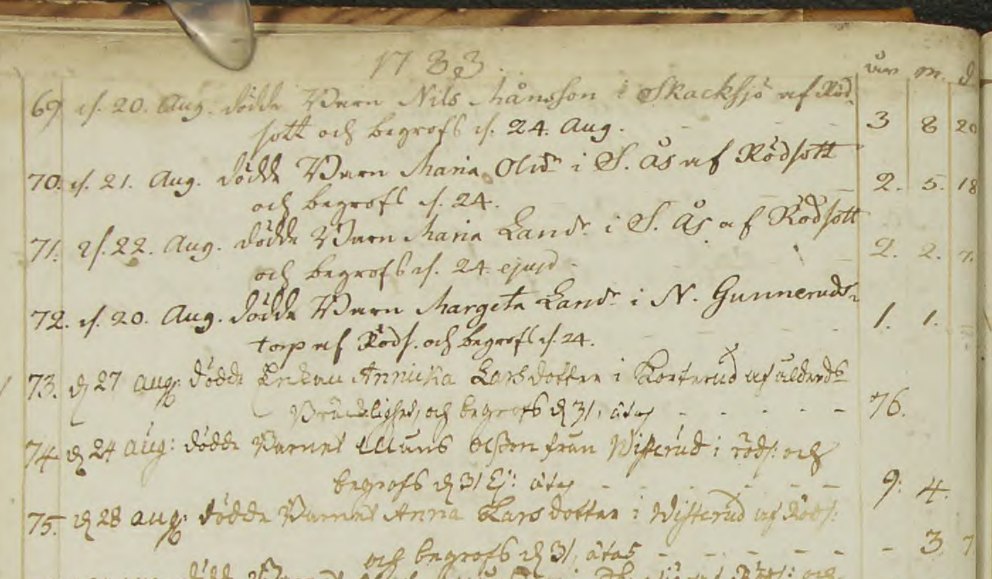 1783. år m. d
69. d. 20. Aug. dödde Barn Nils Månsson i Skacksjö af Röd-
sott och begrofs d. 24. Aug. - - - 3 8 20
70. d. 21. Aug. dödde Barn Maria Olsdr i S. Ås af Rödsott
och begrofs d. 24. - - - 2. 5. 18
71. d. 22. Aug. dödde Barn Maria Larsdr i S. Ås af Rödsott
och begrofs d. 24. ejusd - - - 2. 2. 7.
72. d. 20. Aug. dödde Barn Margeta Larsdr i N. Gunneruds-
torp af Röds. och begrofs d. 24. - - - 1. 1. -
73. d 27 aug: dödde Enkan Annicka Larsdotter i af ålderds
Bräcklighet, och begrofs d 31, - - - 76.
74 d 24 aug: dödde Barnet Måns Olson från Wisterud i röds: och
begrofs d 31 Ej: - - - 9: 4.
75. d 28 aug: dödde Barnet Anna Lars dotter i Wisterud af Röds:
och begrofs d 31, - - - 3. 7
dödde